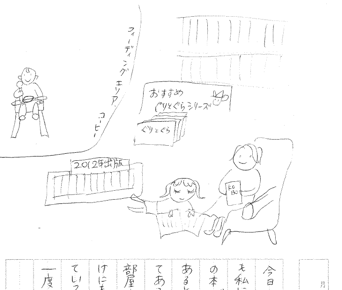 フィーディングエリア
コーヒー
おすすめ
ぐりとぐらシリーズ
ぐりとぐら
2012年出版
今日
を私に
の本
あると
てあ
部屋
けにも
ていて
一度
月